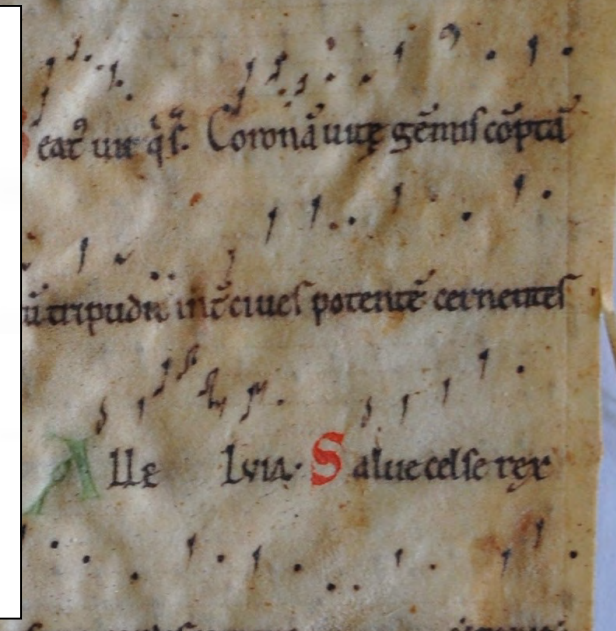 eat᷒ uir q̇ ſ. Coronā uitę gēmiſ cōptā
ū tripudii int̄ ciueſ potentē cernenteſ
Alle lvia. Salue celſe rex